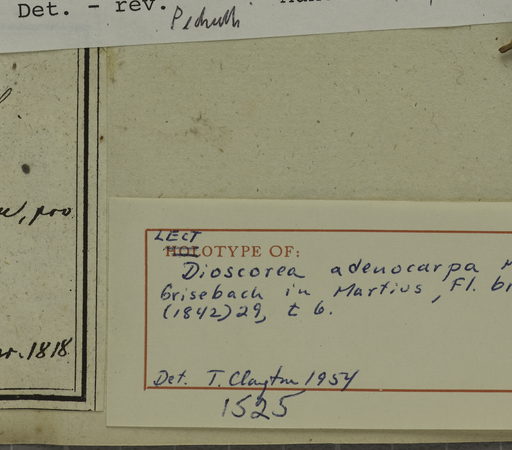 Det. - rev.
pro
1818
LECT
HOLOTYPE OF:
Dioscorea adenocarpa M
Grisebach in Martius, Fl. br
(1842) 29, t 6.
Det. T. Clayton 1954
1525